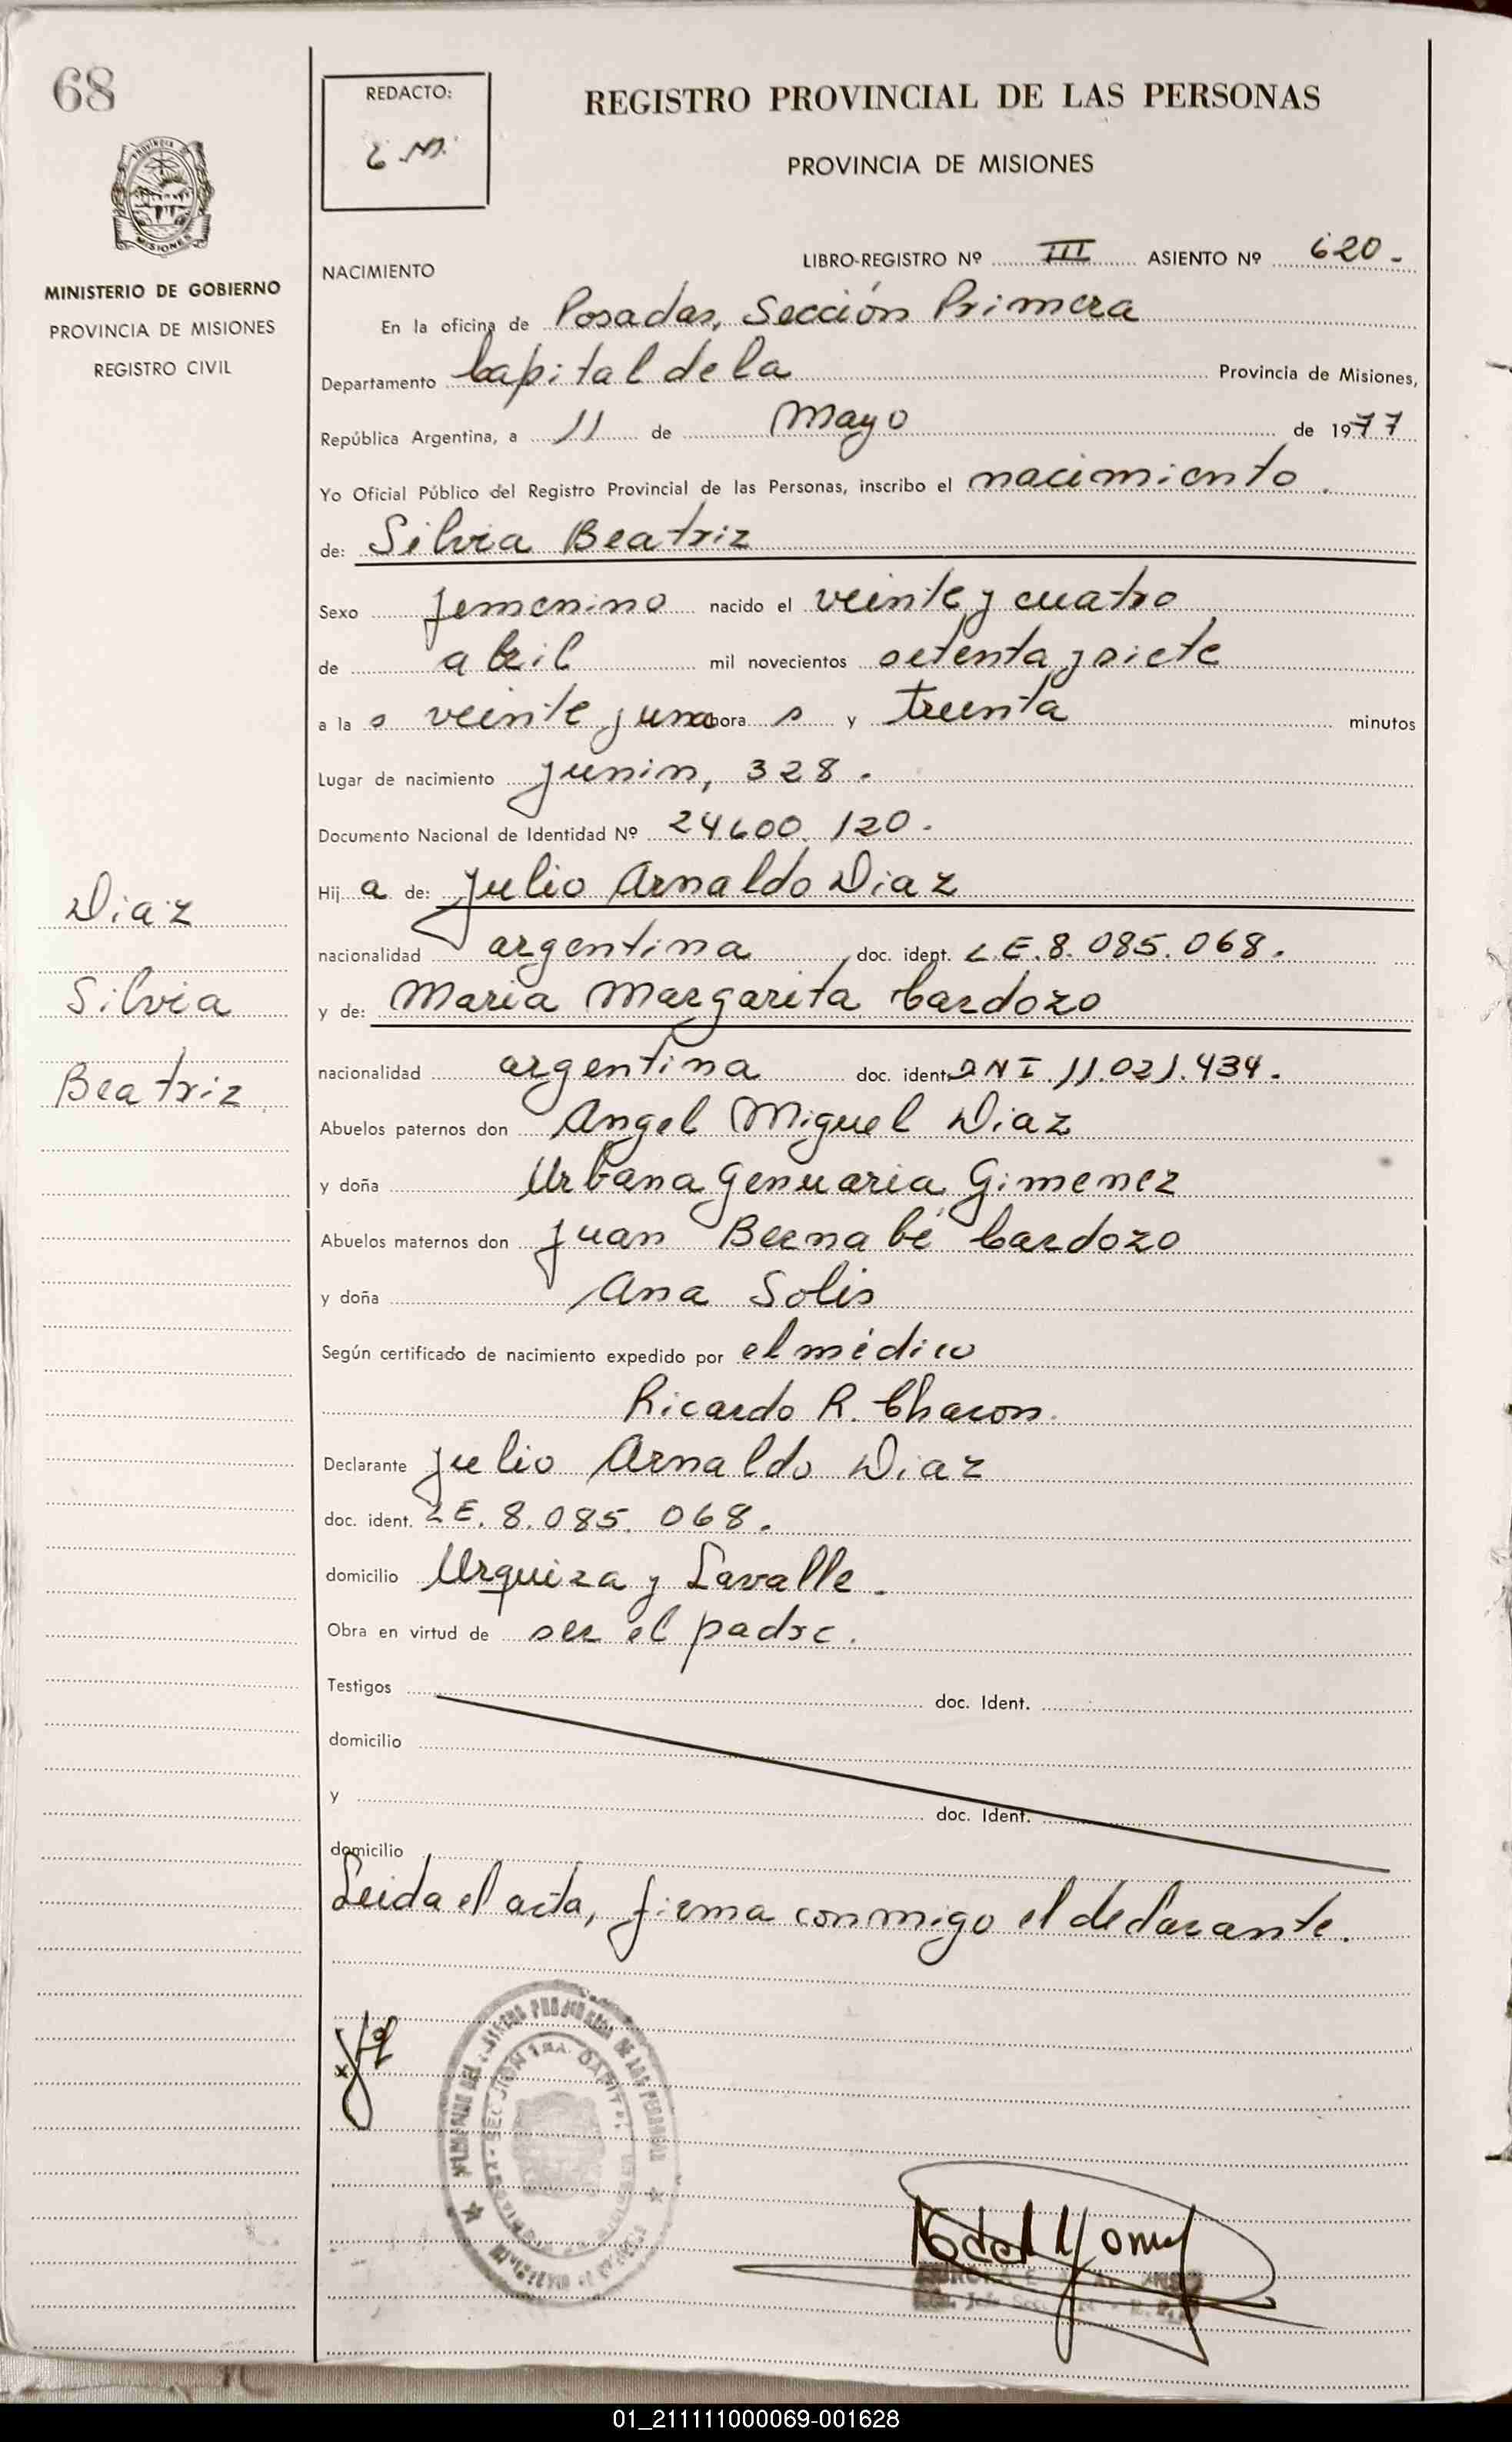 68
REDACTO:
REGISTRO PROVINCIAL DE LAS PERSONAS
PROVINCIA DE MISIONES
MISIONES
MINISTERIO DE GOBIERNO
PROVINCIA DE MISIONES
REGISTRO CIVIL
NACIMIENTO
LIBRO-REGISTRO Nº III ASIENTO Nº 620.-
En la oficina de Posadas, Sección Primera
Departamento Capital de la Provincia de Misiones,
República Argentina, a 11 de Mayo de 1977
Yo Oficial Público del Registro Provincial de las Personas, inscribo el nacimiento.
de: Silvia Beatriz
Sexo femenino nacido el veinte y cuatro
de abril mil novecientos setenta y siete
a la s veinte y una hora s y treinta minutos
Lugar de nacimiento Junin, 328.
Documento Nacional de Identidad Nº 24.600.120.
Hij a de: Julio Arnaldo Diaz
nacionalidad argentina doc. ident. L.E. 8.085.068.
y de: Maria Margarita Cardozo
nacionalidad argentina doc. ident. DNI. 11.021.434.
Abuelos paternos don Angel Miguel Diaz
y doña Urbana Genuaria Gimenez
Abuelos maternos don Juan Bernabé Cardozo
y doña Ana Solis
Según certificado de nacimiento expedido por el médico
Ricardo R. Chacon.
Declarante Julio Arnaldo Diaz
doc. ident. LE. 8.085.068.
domicilio Urquiza y Lavalle.
Obra en virtud de ser el padre.
Testigos doc. Ident.
domicilio
y doc. Ident.
domicilio
Leida el acta, firma conmigo el declarante.
Diaz
Silvia
Beatriz
01_211111000069-001628